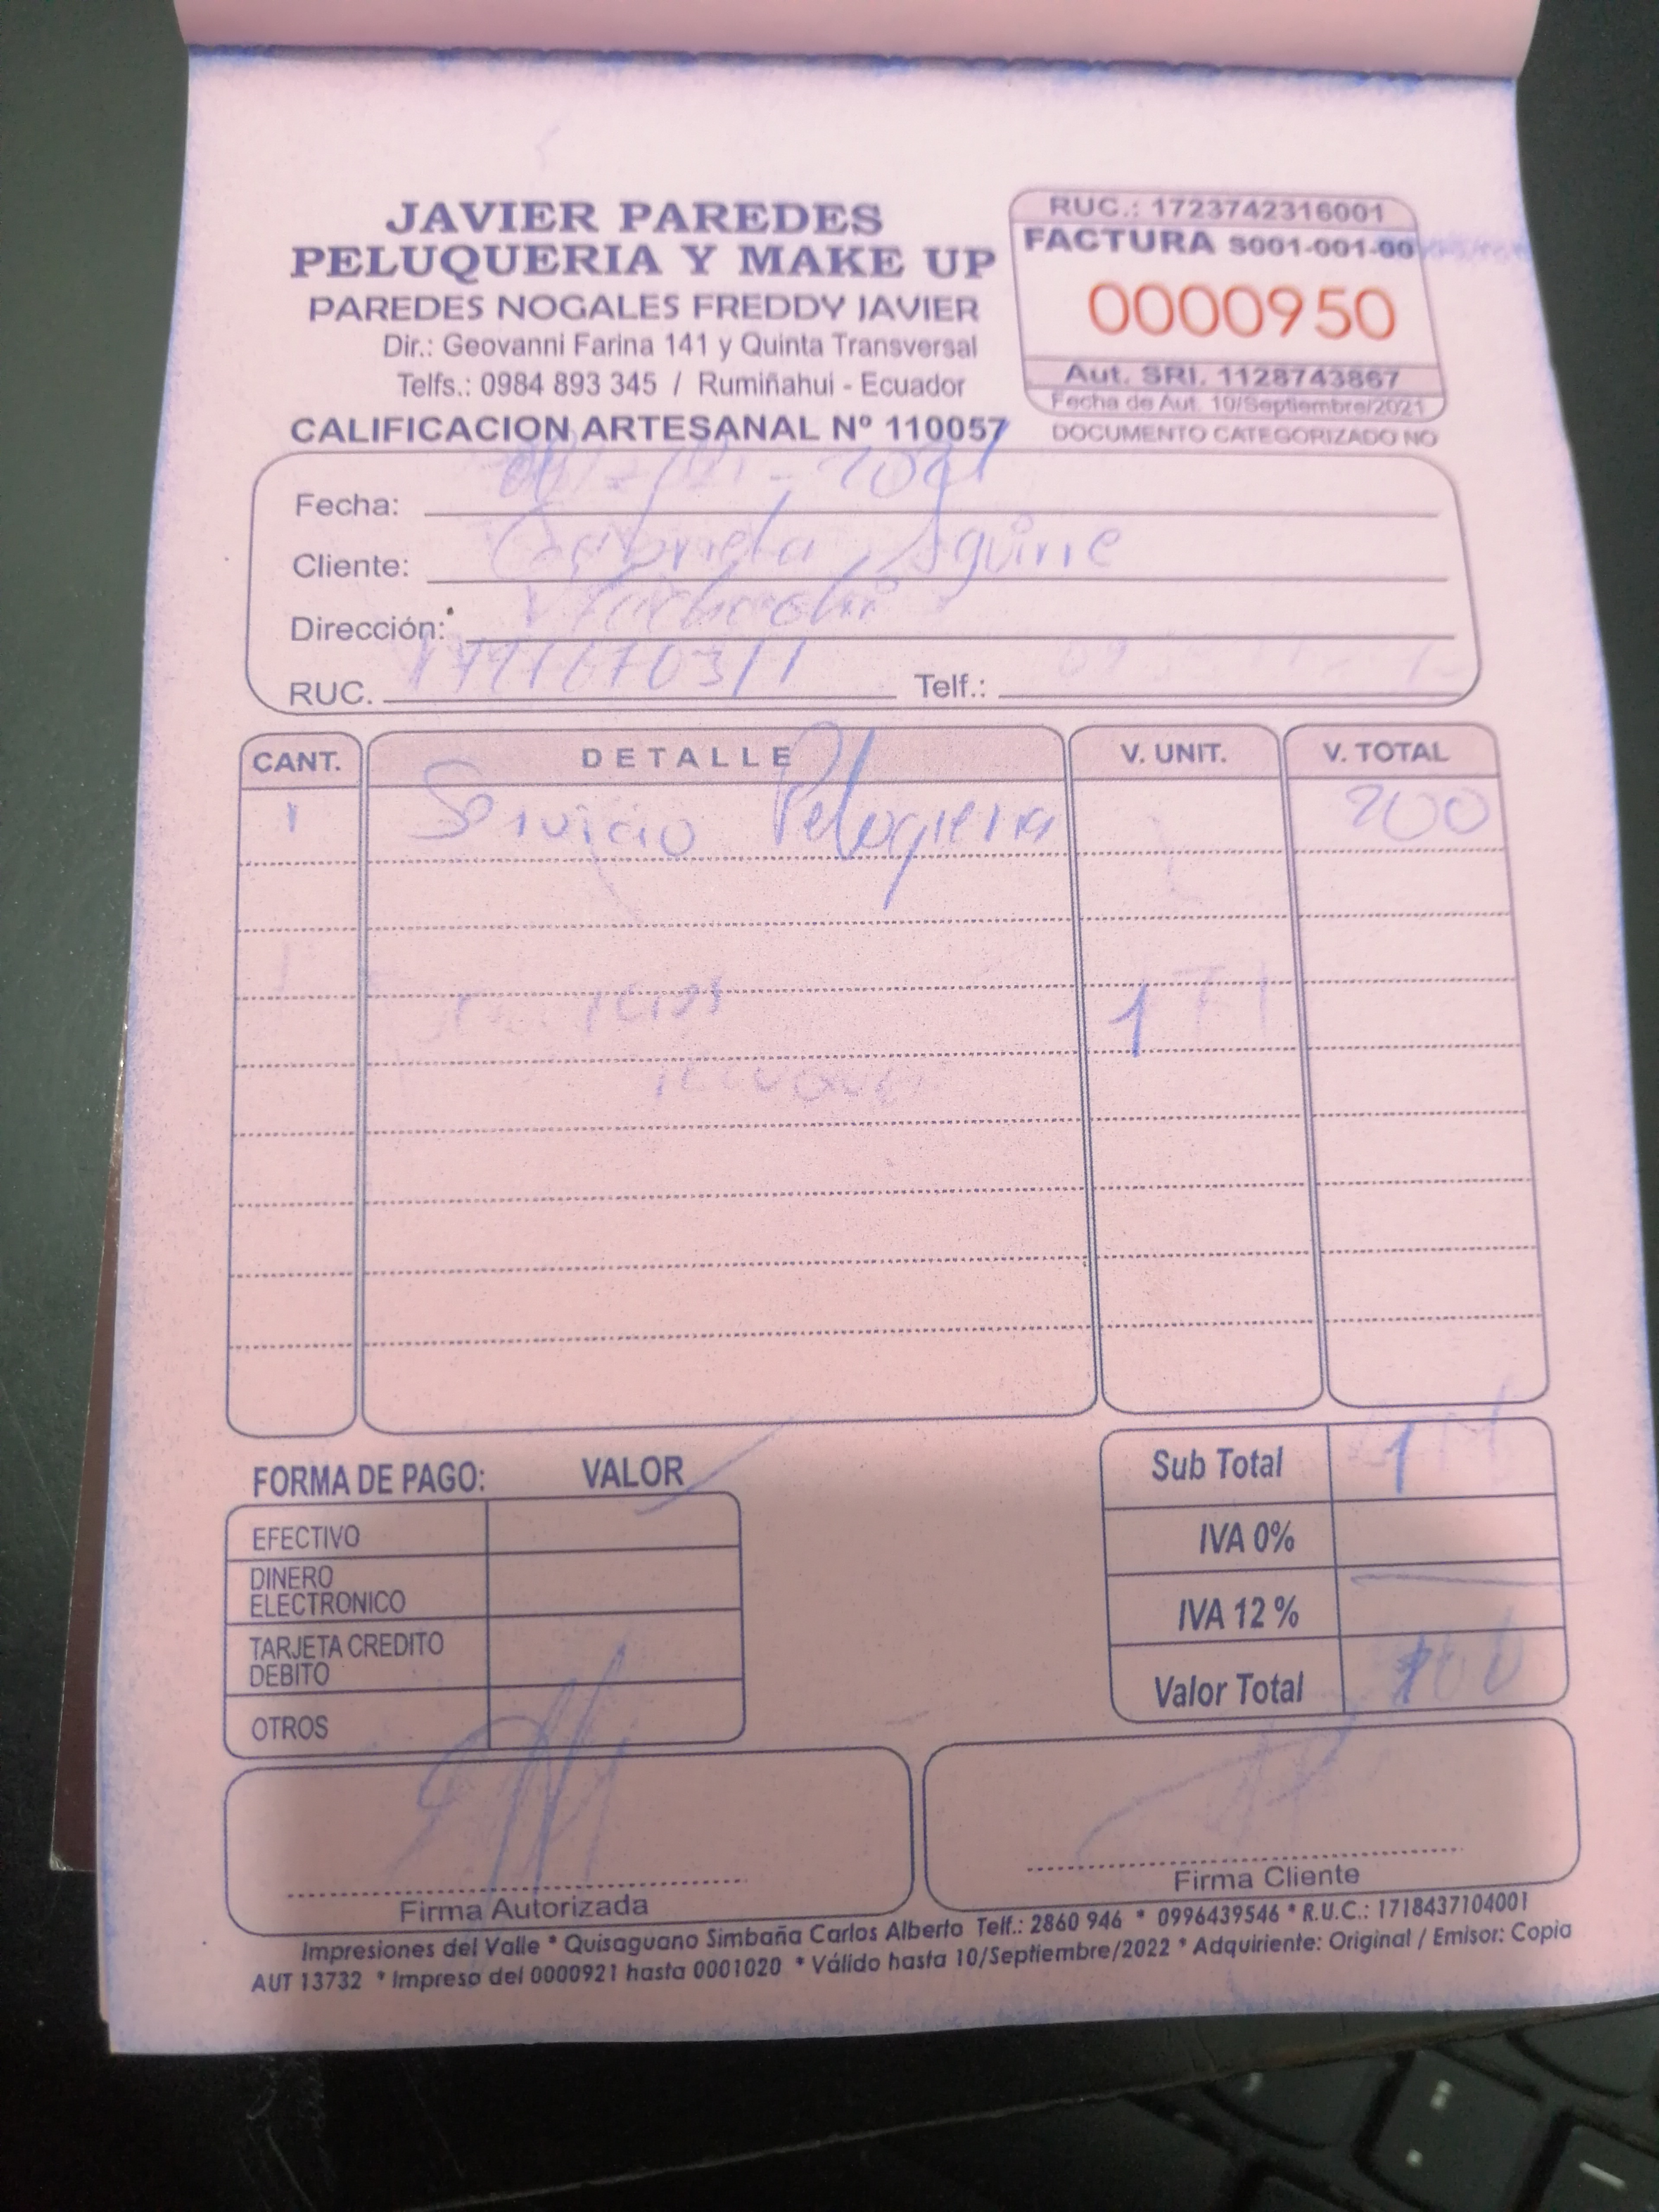 JAVIER PAREDES
PELUQUERIA Y MAKE UP
PAREDES NOGALES FREDDY JAVIER
Dir.: Geovanni Farina 141 y Quinta Transversal
Telfs.: 0984 893 345 / Rumiñahui - Ecuador
CALIFICACION ARTESANAL Nº 110057
RUC.: 1723742316001
FACTURA S001-001-00
0000950
Aut. SRI. 1128743867
Fecha de Aut. 10/Septiembre/2021
DOCUMENTO CATEGORIZADO NO
Fecha:
Cliente: Gabriela Aguirre
Dirección: Machachi
RUC. Telf.:
CANT. DETALLE V. UNIT. V. TOTAL
1 Servicio Peluqieria 200
FORMA DE PAGO: VALOR
EFECTIVO
DINERO ELECTRONICO
TARJETA CREDITO DEBITO
OTROS
Sub Total
IVA 0%
IVA 12 %
Valor Total
Firma Autorizada
Firma Cliente
Impresiones del Valle * Quisaguano Simbaña Carlos Alberto Telf.: 2860 946 * 0996439546 * R.U.C.: 1718437104001
AUT 13732 * Impreso del 0000921 hasta 0001020 * Válido hasta 10/Septiembre/2022 * Adquiriente: Original / Emisor: Copia